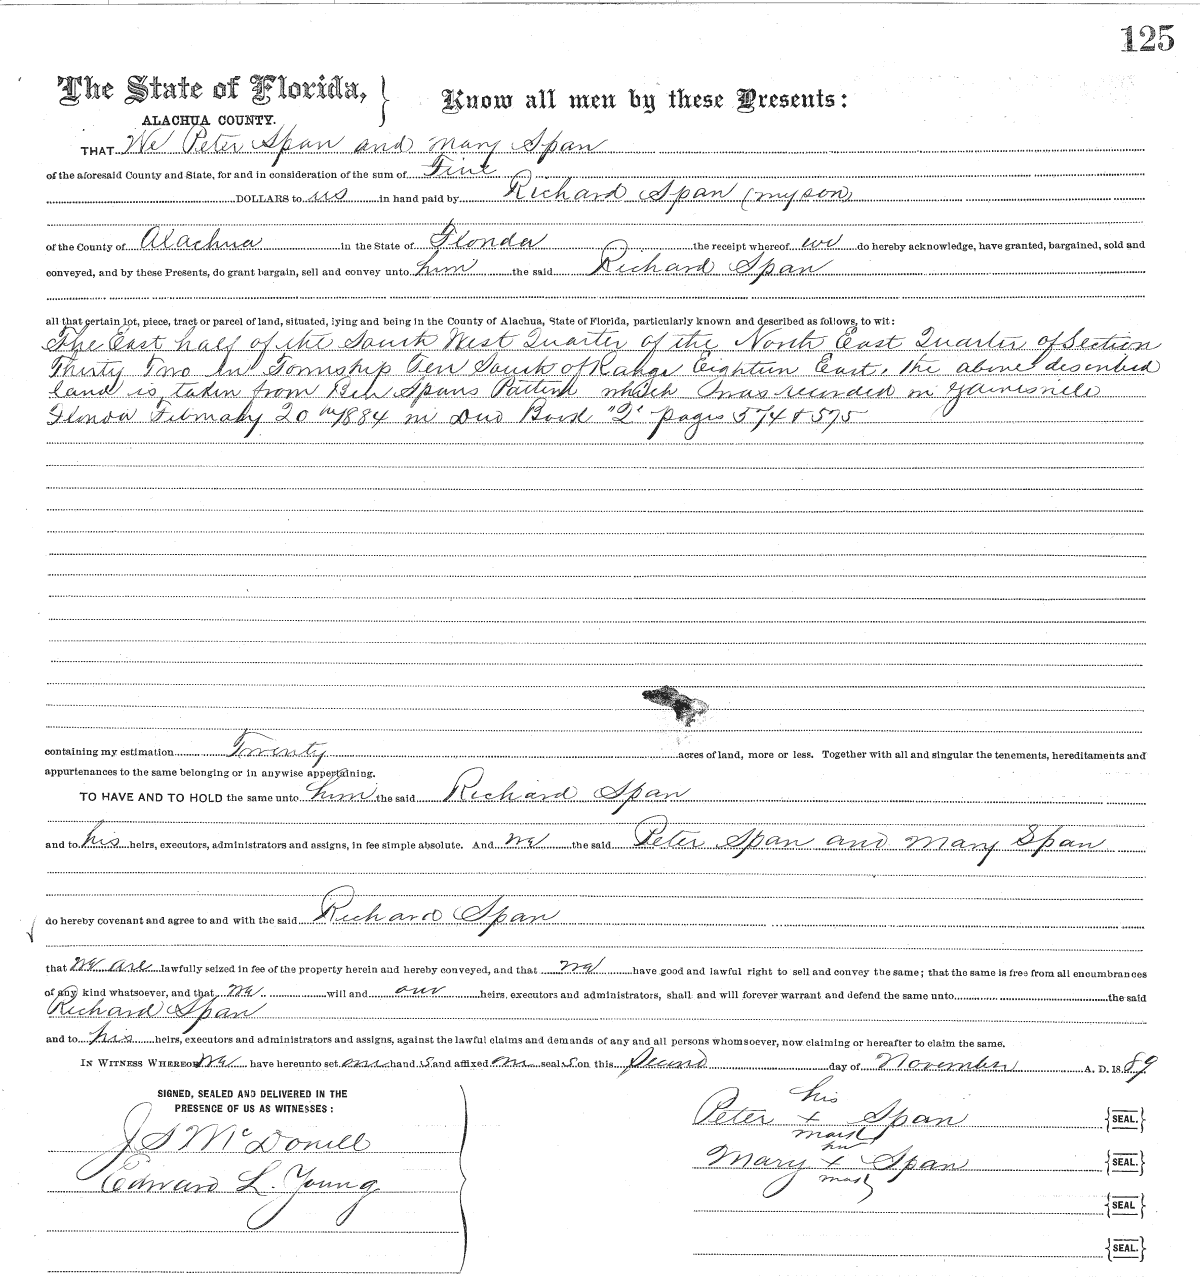 125
The State of Florida, } Know all men by these Presents:
ALACHUA COUNTY.
THAT We Peter Span and Mary Span
of the aforesaid County and State, for and in consideration of the sum of Five
DOLLARS to us in hand paid by Richard Span (my son)
of the County of Alachua in the State of Florida the receipt whereof we do hereby acknowledge, have granted, bargained, sold and
conveyed, and by these Presents, do grant bargain, sell and convey unto him the said Richard Span
all that certain lot, piece, tract or parcel of land, situated, lying and being in the County of Alachua, State of Florida, particularly known and described as follows, to wit:
The East half of the South West Quarter of the North East Quarter of Section
Thirty Two In Township Ten South of Range Eighteen East. The above described
land is taken from Ben Spans Pattent which was recorded in Gainesville
Florida February 20th 1884 in Deed Book "Q" pages 574 & 575
containing my estimation Twenty acres of land, more or less. Together with all and singular the tenements, hereditaments and
appurtenances to the same belonging or in anywise appertaining.
TO HAVE AND TO HOLD the same unto him the said Richard Span
and to his heirs, executors, administrators and assigns, in fee simple absolute. And we the said Peter Span and Mary Span
do hereby covenant and agree to and with the said Richard Span
that we are lawfully seized in fee of the property herein and hereby conveyed, and that we have good and lawful right to sell and convey the same; that the same is free from all encumbrances
of any kind whatsoever, and that we will and our heirs, executors and administrators, shall and will forever warrant and defend the same unto the said
Richard Span
and to his heirs, executors and administrators and assigns, against the lawful claims and demands of any and all persons whomsoever, now claiming or hereafter to claim the same.
IN WITNESS WHEREOF we have hereunto set our hand s and affixed our seal s on this Second day of November A. D. 18 89
SIGNED, SEALED AND DELIVERED IN THE
PRESENCE OF US AS WITNESSES:
J S McDonell
Edward L. Young
his
Peter + Span {SEAL.}
mark
her
Mary + Span {SEAL.}
mark
{SEAL}
{SEAL.}